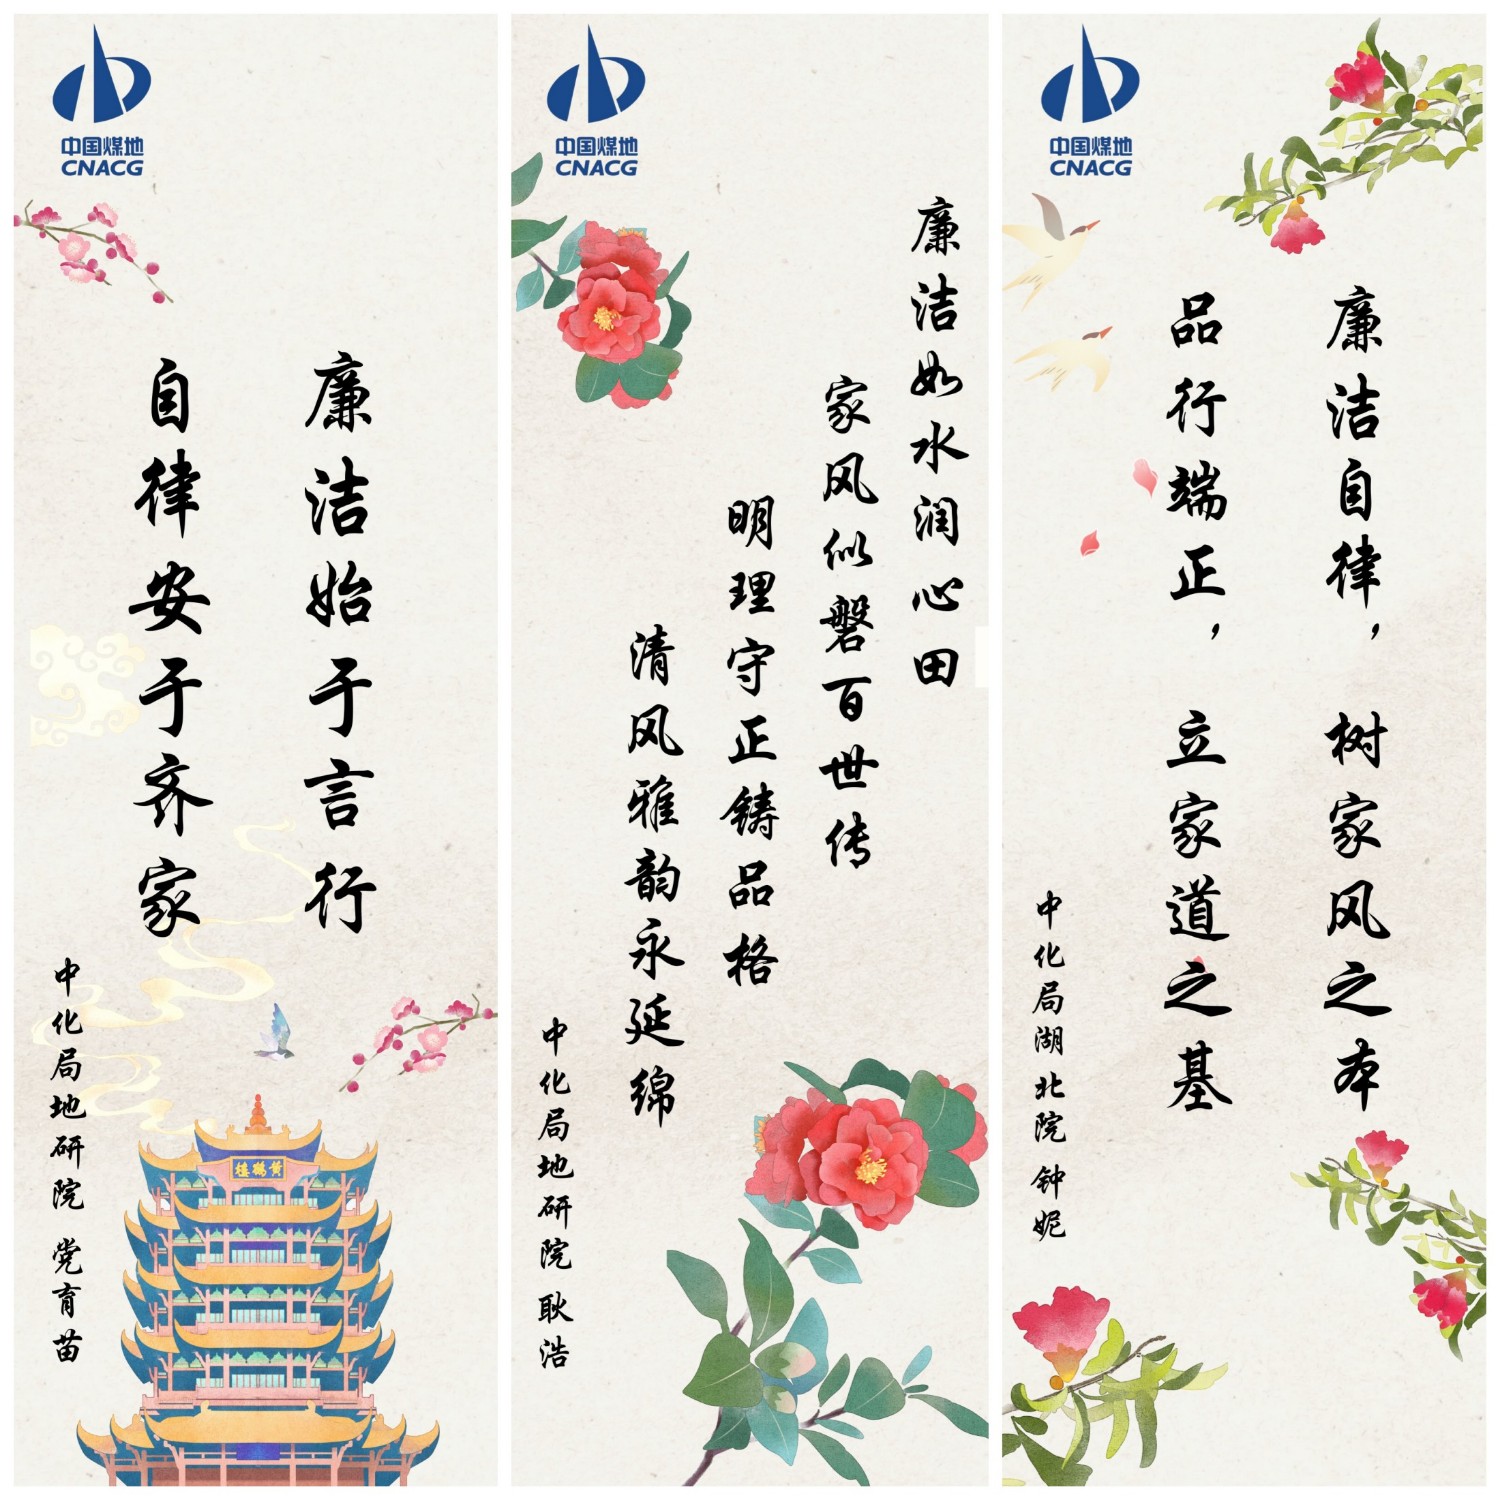 中国煤地
CNACG
廉洁始于言行
自律安于齐家
中化局地研院 党育苗
黄鹤楼
中国煤地
CNACG
廉洁如水润心田
家风似磐百世传
明理守正铸品格
清风雅韵永延绵
中化局地研院 耿浩
中国煤地
CNACG
廉洁自律，树家风之本
品行端正，立家道之基
中化局湖北院 钟妮